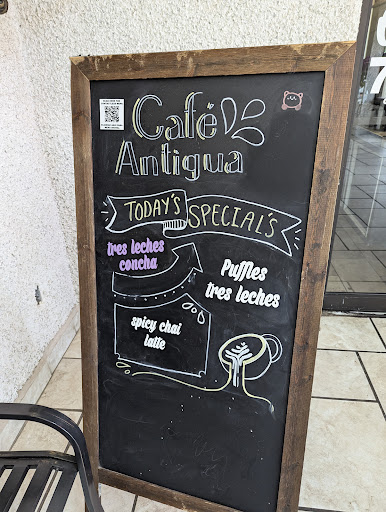 Café
Antigua
TODAY'S
SPECIAL'S
tres leches
concha
Puffles
tres leches
spicy chai
latte